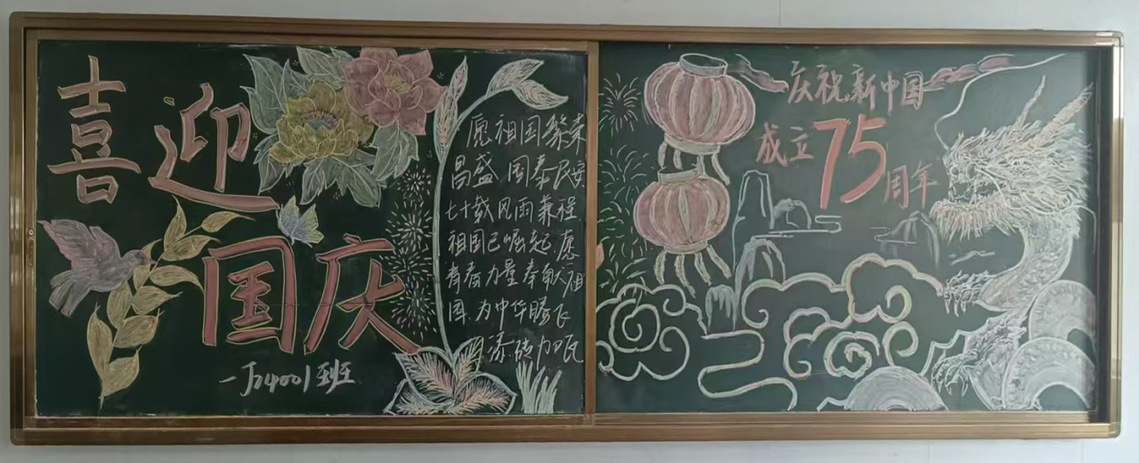 喜迎
国庆
一J24001班
愿祖国繁荣
昌盛 国泰民安
七十载风雨兼程
祖国已崛起,愿
青春力量奉献祖
国,为中华腾飞
添砖加瓦
庆祝新中国
成立75周年